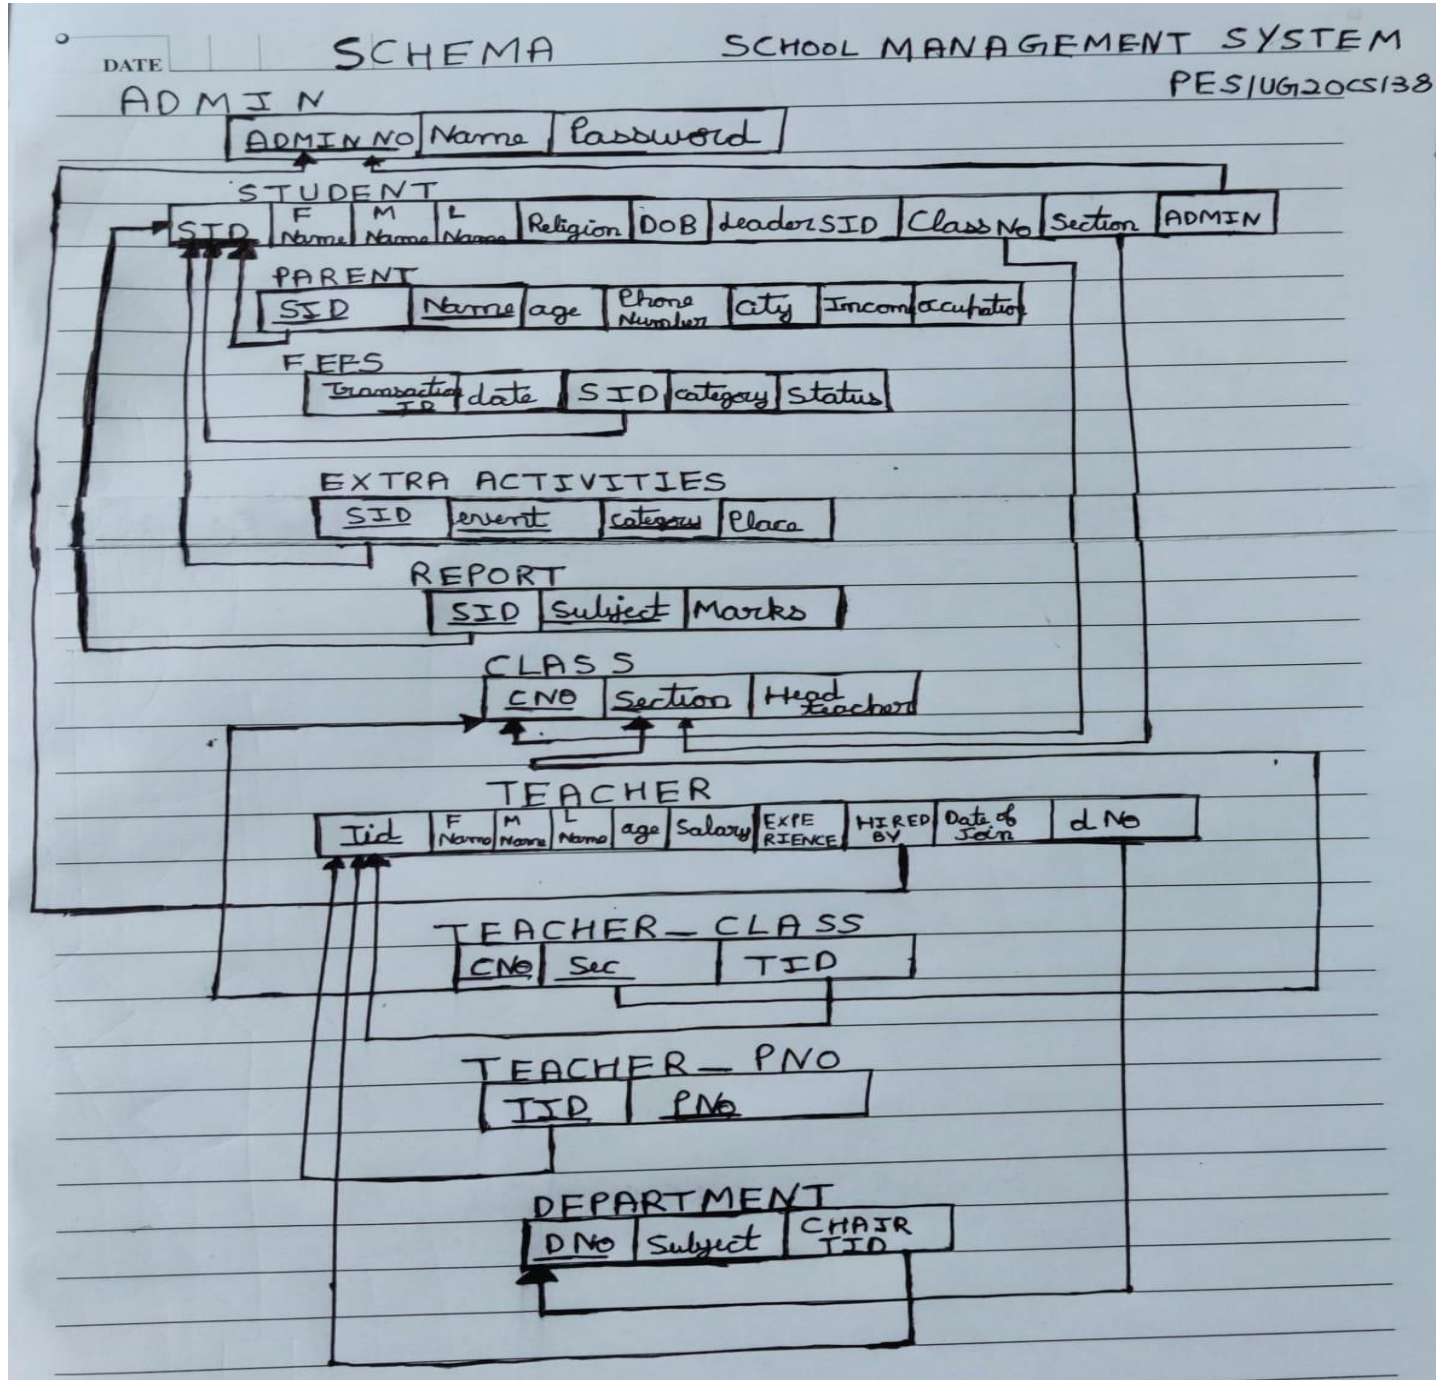 SCHEMA SCHOOL MANAGEMENT SYSTEM
DATE
PES1UG20CS138
ADMIN
ADMIN NO Name Password
STUDENT
SID F Name M Name L Name Religion DOB LeaderSID Class No Section ADMIN
PARENT
SID Name age Phone Number city Incom occupation
FEES
Transaction ID date SID category Status
EXTRA ACTIVITIES
SID event category Place
REPORT
SID Subject Marks
CLASS
CNO Section Head teacher
TEACHER
Tid F Name M Name L Name age Salary EXPE RIENCE HIRED BY Date of Join d No
TEACHER_CLASS
CNo Sec TID
TEACHER_PNO
TID PNo
DEPARTMENT
DNo Subject CHAIR TID